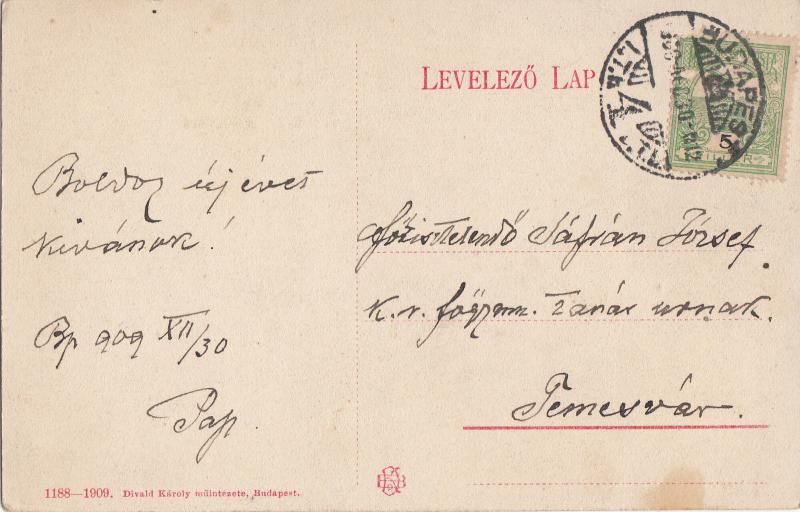 LEVELEZŐ LAP
BUDAPEST
4
5
FILLÉR
Boldog új évet
kivánok!
Bp 909 XII/30
Pap
főtisztelendő Sáfrán József
k. r. főgymn. tanár urnak.
Temesvár.
1188—1909. Divald Károly műintézete, Budapest.